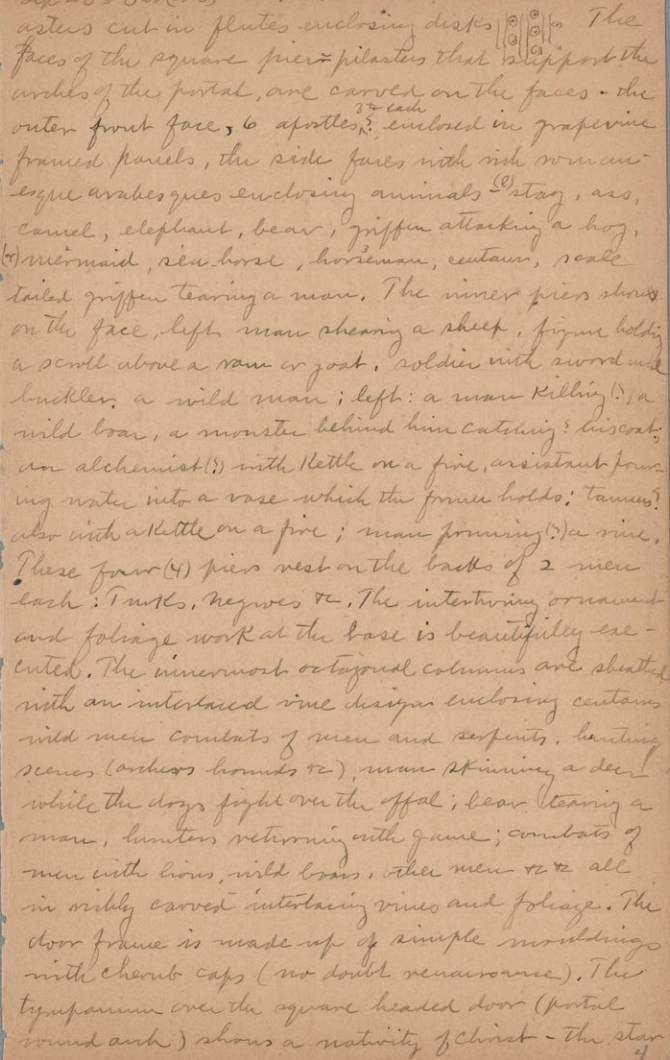 asters cut in flutes enclosing disks The
faces of the square pier = pilasters that support the
arches of the portal, are carved on the faces - the
outer front face, 6 apostles, 3 ea each enclosed in grapevine
framed panels, the side faces with rich roman-
esque arabesques enclosing animals - (l) stag, ass,
camel, elephant, bear, griffen attacking a hog,
(r) mermaid, sea-horse, horseman, centaur, scale
tailed griffen tearing a man. The inner piers shows
on the face, left man shearing a sheep, figure holding
a scroll above a ram or goat, soldier with sword and
buckler, a wild man; left: a man killing (?) a
wild boar, a monster behind him catching? his coat;
an alchemist (?) with kettle on a fire, assistant pour-
ing water into a vase which the former holds; tanner?
also with a kettle on a fire; man pruning (?) a vine.
These four (4) piers rest on the backs of 2 men
each: Turks, negroes &c. The intertwining ornament
and foliage work at the base is beautifully exe-
cuted. The innermost octagonal columns are sheathed
with an interlaced vine design enclosing centaurs
wild men combats of men and serpents, hunting
scenes (archers hounds &c), man skinning a deer
while the dogs fight over the offal; bear tearing a
man, hunters returning with game; combats of
men with lions, wild boars, other men &c &c all
in richly carved interlacing vines and foliage. The
door frame is made up of simple mouldings
with cherub caps (no doubt renaissance). The
tympanum over the square headed door (portal
round arch) shows a nativity of Christ - the star